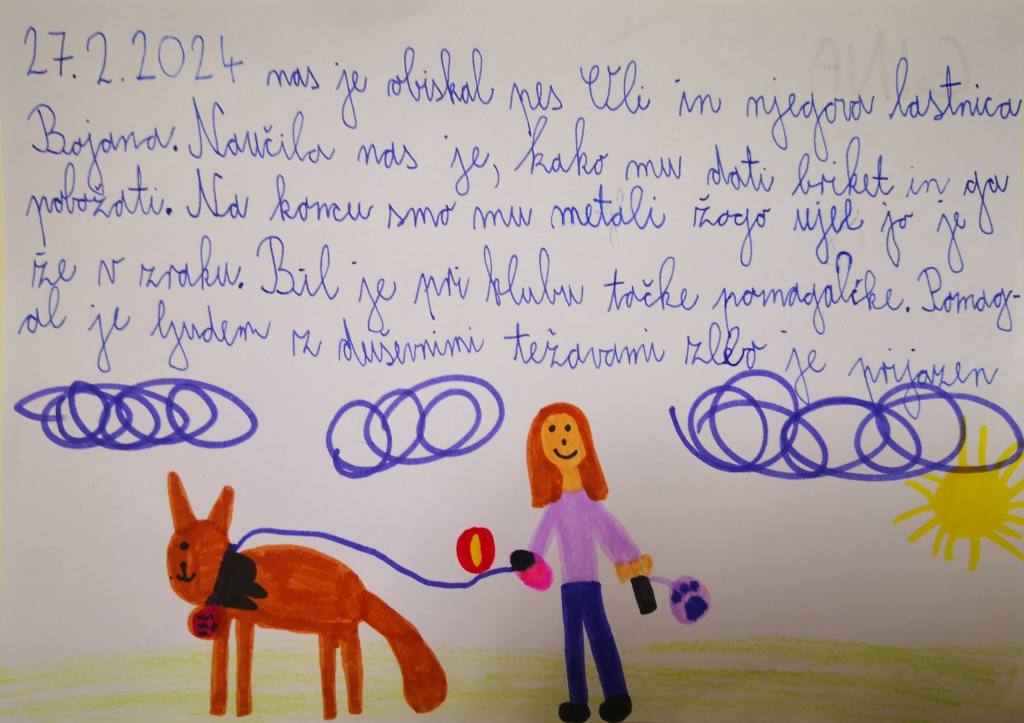 27. 2. 2024 nas je obiskal pes Uli in njegova lastnica
Bojana. Naučila nas je, kako mu dati briket in ga
pobožati. Na koncu smo mu metali žogo ujel jo je
že v zraku. Bil je pri klubu tačke pomagačke. Pomag-
al je ljudem z duševnimi težavami zelo je prijazen
GINA